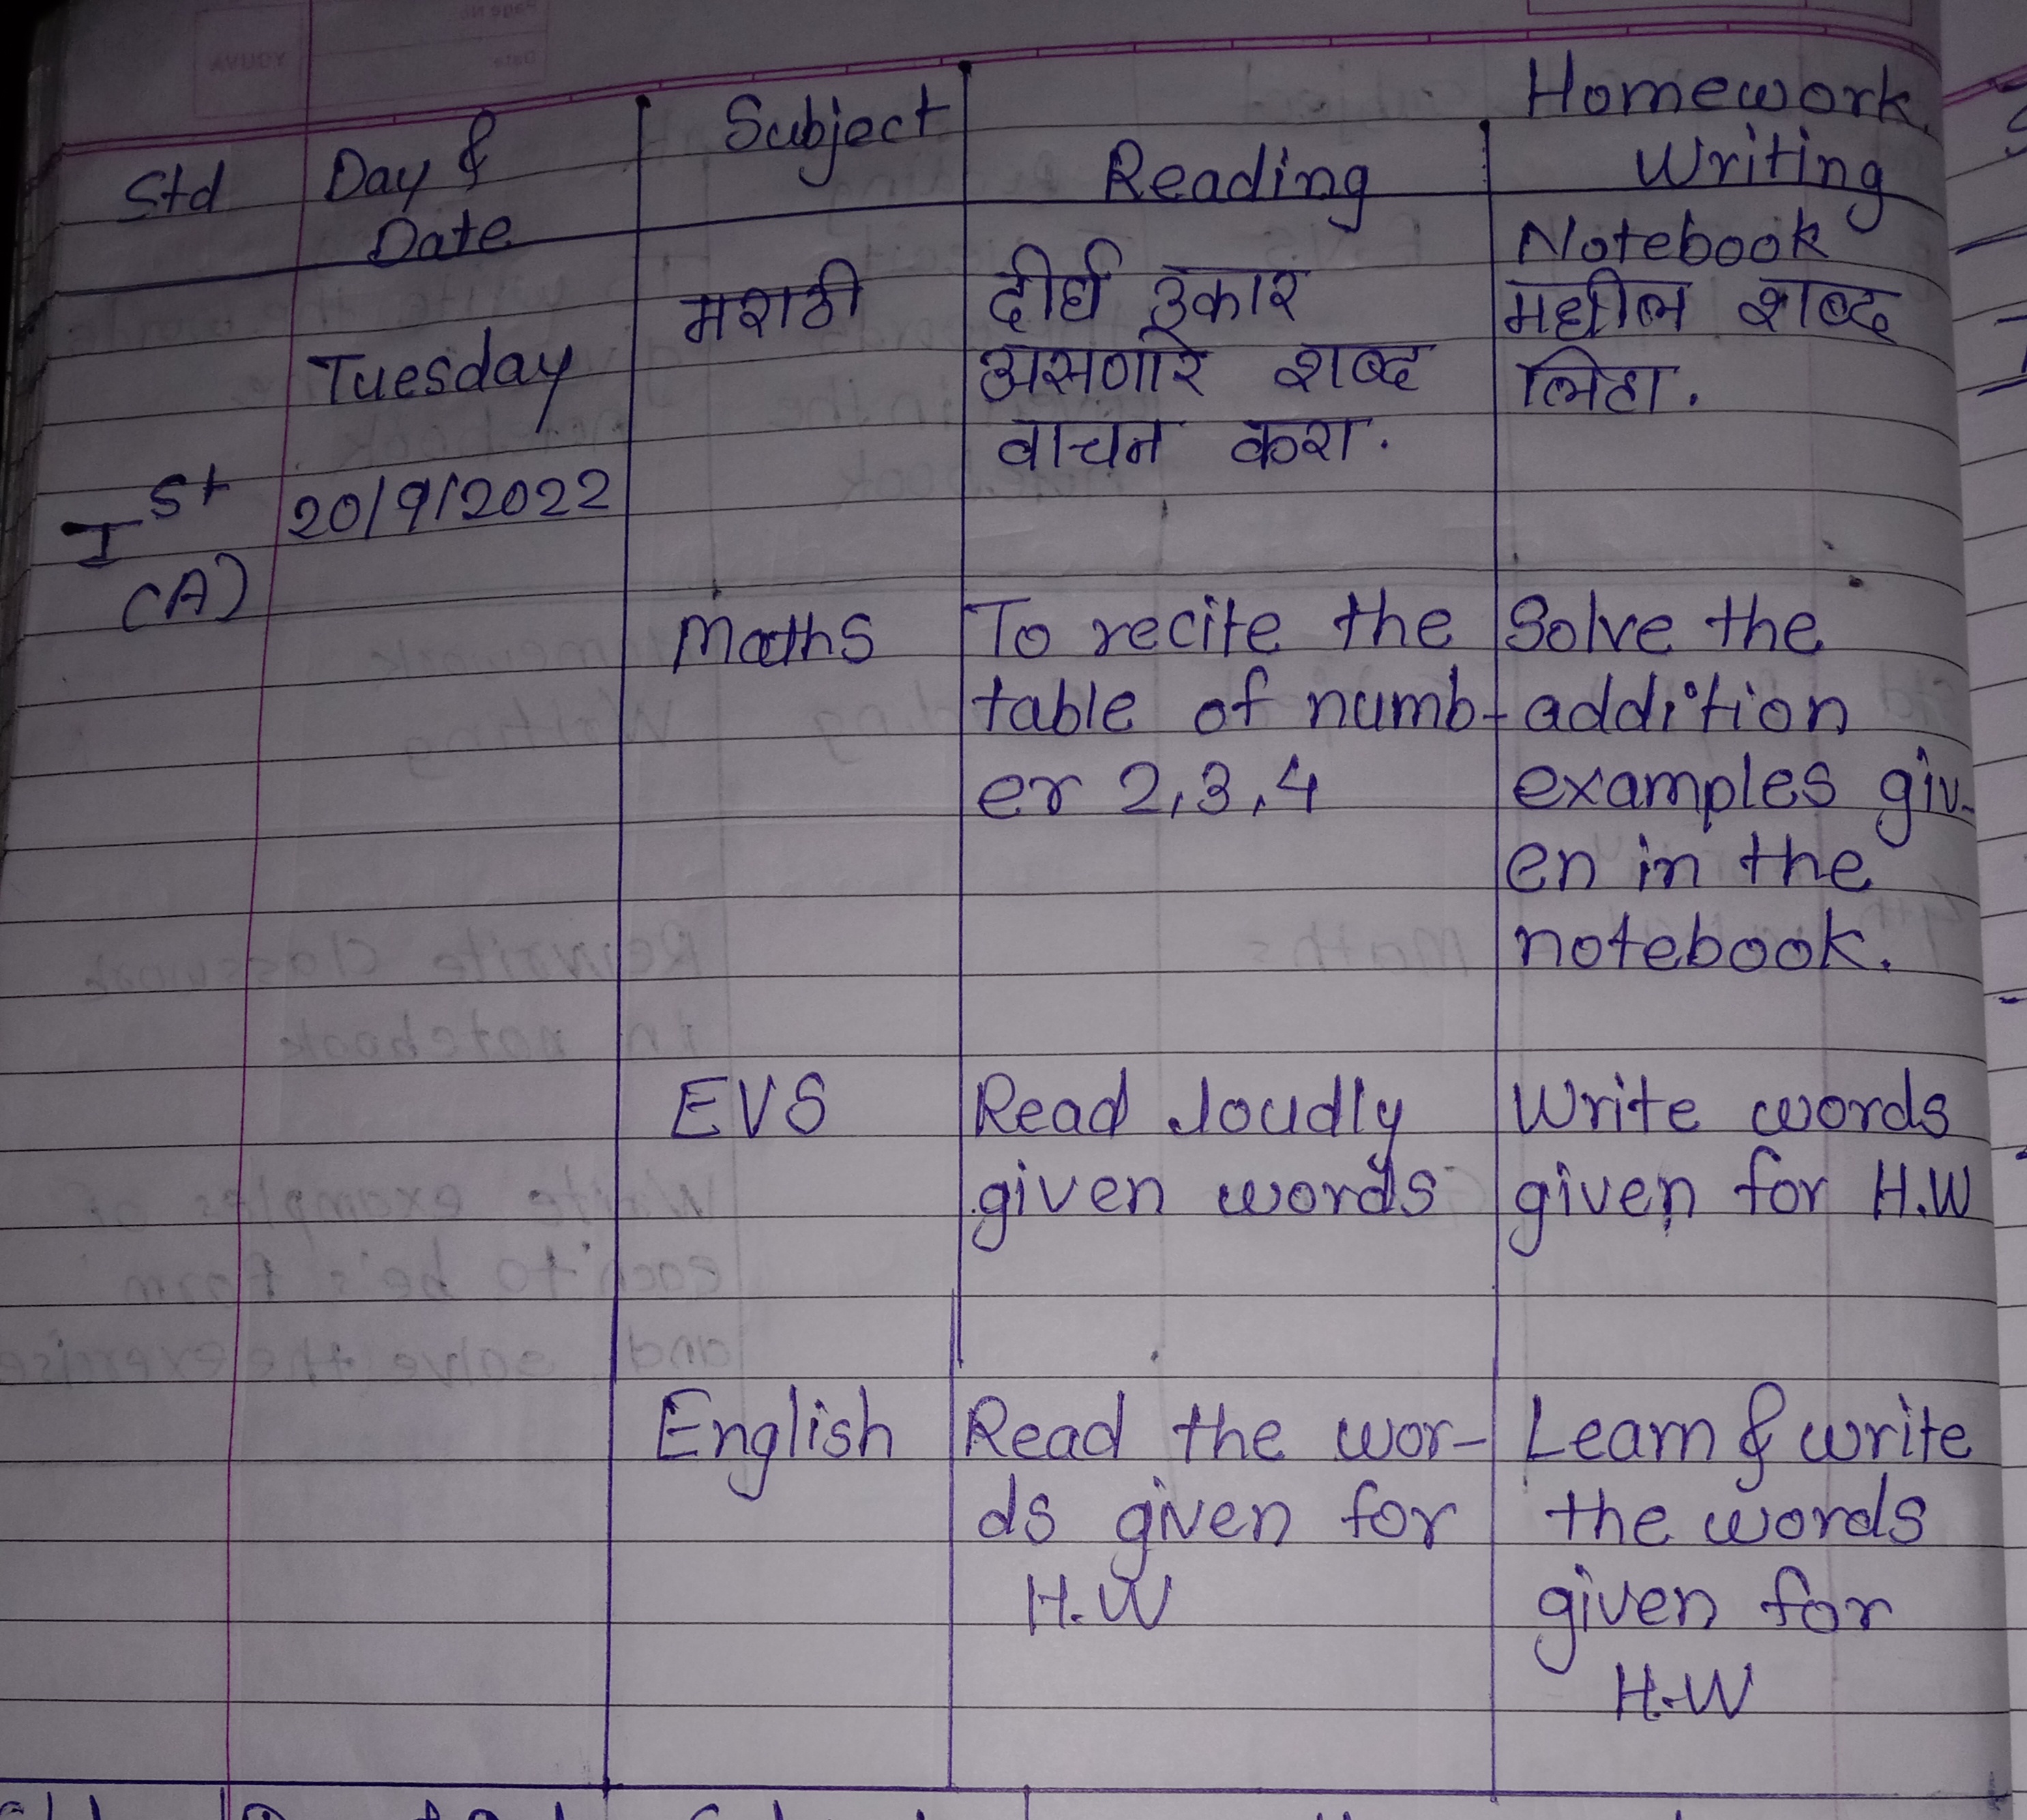 Homework.
Std Day & Subject Reading Writing
Date
मराठी दीर्घ उकार Notebook
असणारे शब्द मधील शब्द
वाचन करा. लिहा.
Tuesday
Ist 20/9/2022
(A)
Maths To recite the Solve the
table of numb- addition
er 2,3,4 examples giv-
en in the
notebook.
EVS Read loudly Write words
given words given for H.W
English Read the wor- Learn & write
ds given for the words
H.W given for
H.W